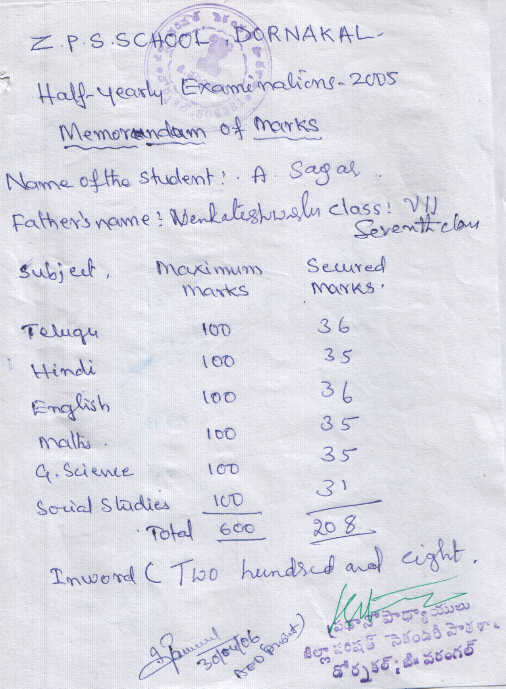 Z.P.S.SCHOOL, DORNAKAL.
Half-yearly Examinations-2005
Memorandam of Marks
Name of the student: A. Sagar.
Father's name: Venkateshwarlu class: VII
Seventh class
Subject. Maximum marks Secured marks.
Telugu 100 36
Hindi 100 35
English 100 36
Maths. 100 35
G. Science 100 35
Social Studies 100 31
Total 600 208
Inword ( Two hundred and eight.
30/04/06
ప్రధానోపాధ్యాయులు
జిల్లా పరిషత్ సెకండరీ పాఠశాల
డోర్నకల్; జి॥ వరంగల్